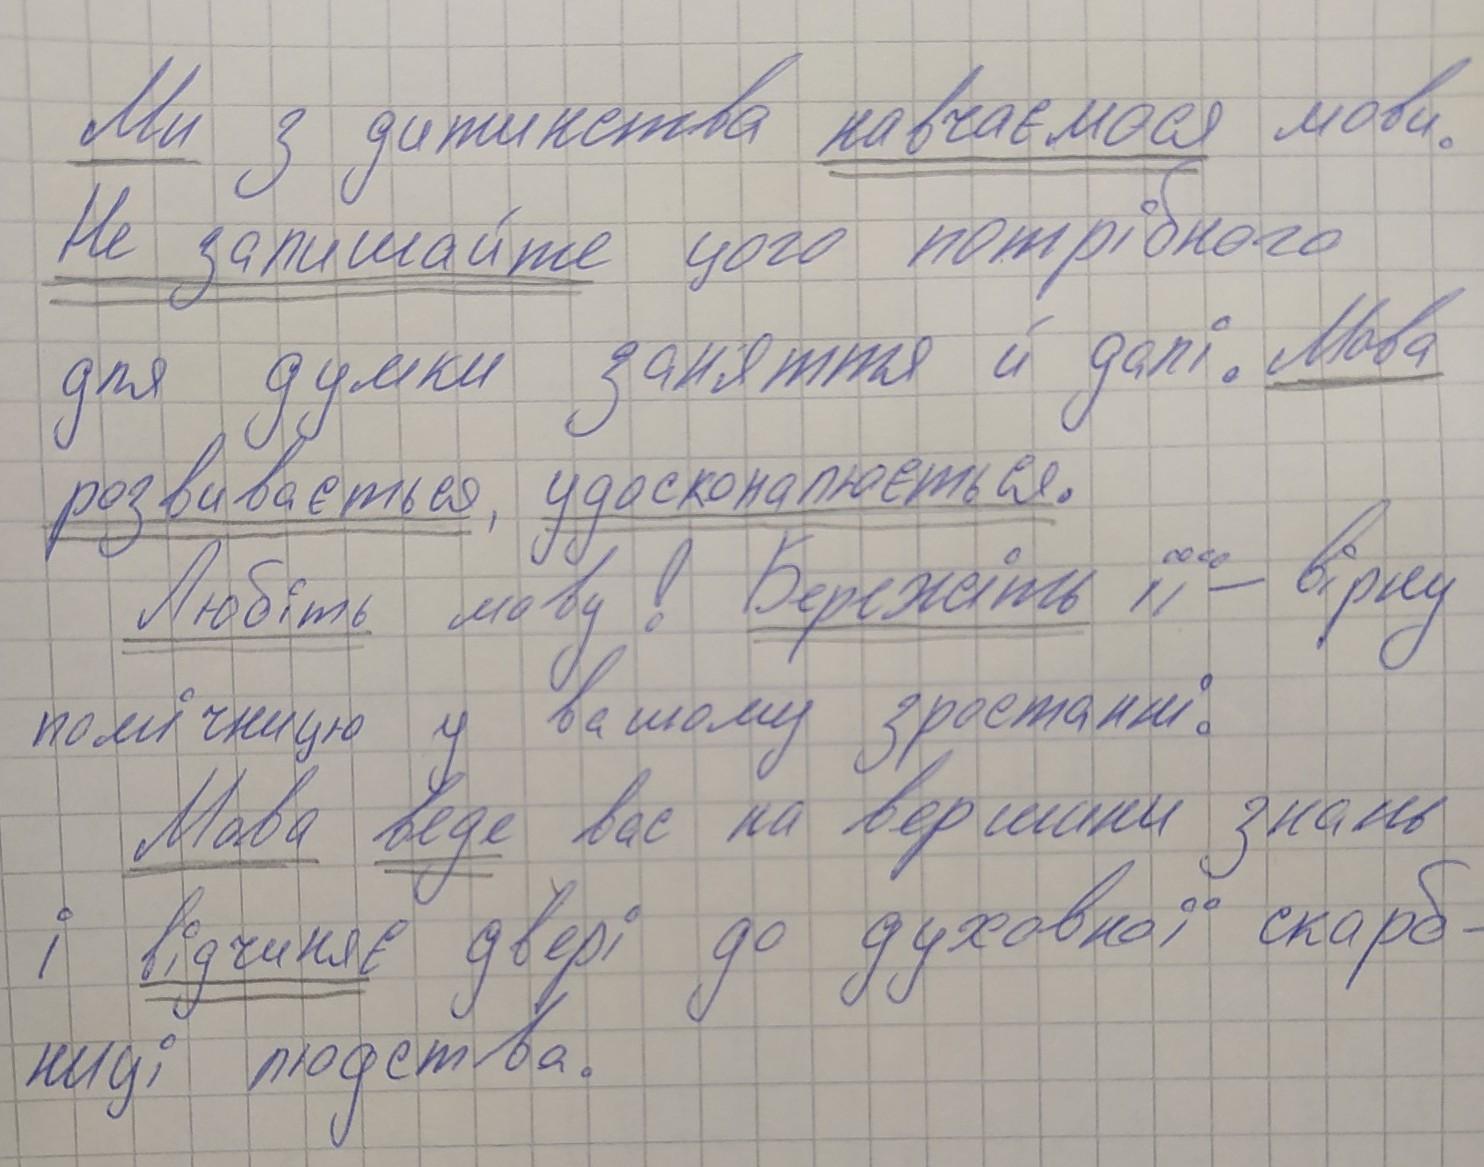 Ми з дитинства навчаємося мови.
Не залишайте цого потрібного
для думки заняття й далі. Мова
розвивається, удосконалюється.
Любіть мову! Бережіть її – вірну
помічницю у вашому зростанні.
Мова веде вас на вершини знань
і відчиняє двері до духовної скарб-
ниці людства.